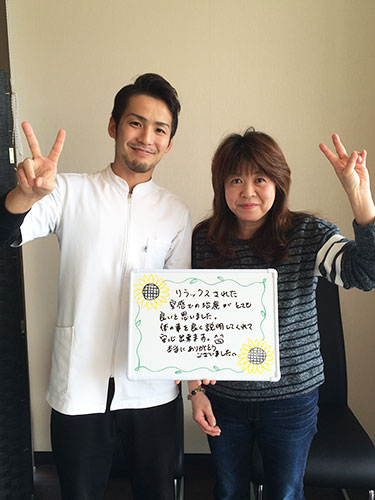 リラックスされた
空感での治療がとても
良いと思いました。
体の事を良く説明してくれて
安心出来ます。
本当にありがとう
ございました。